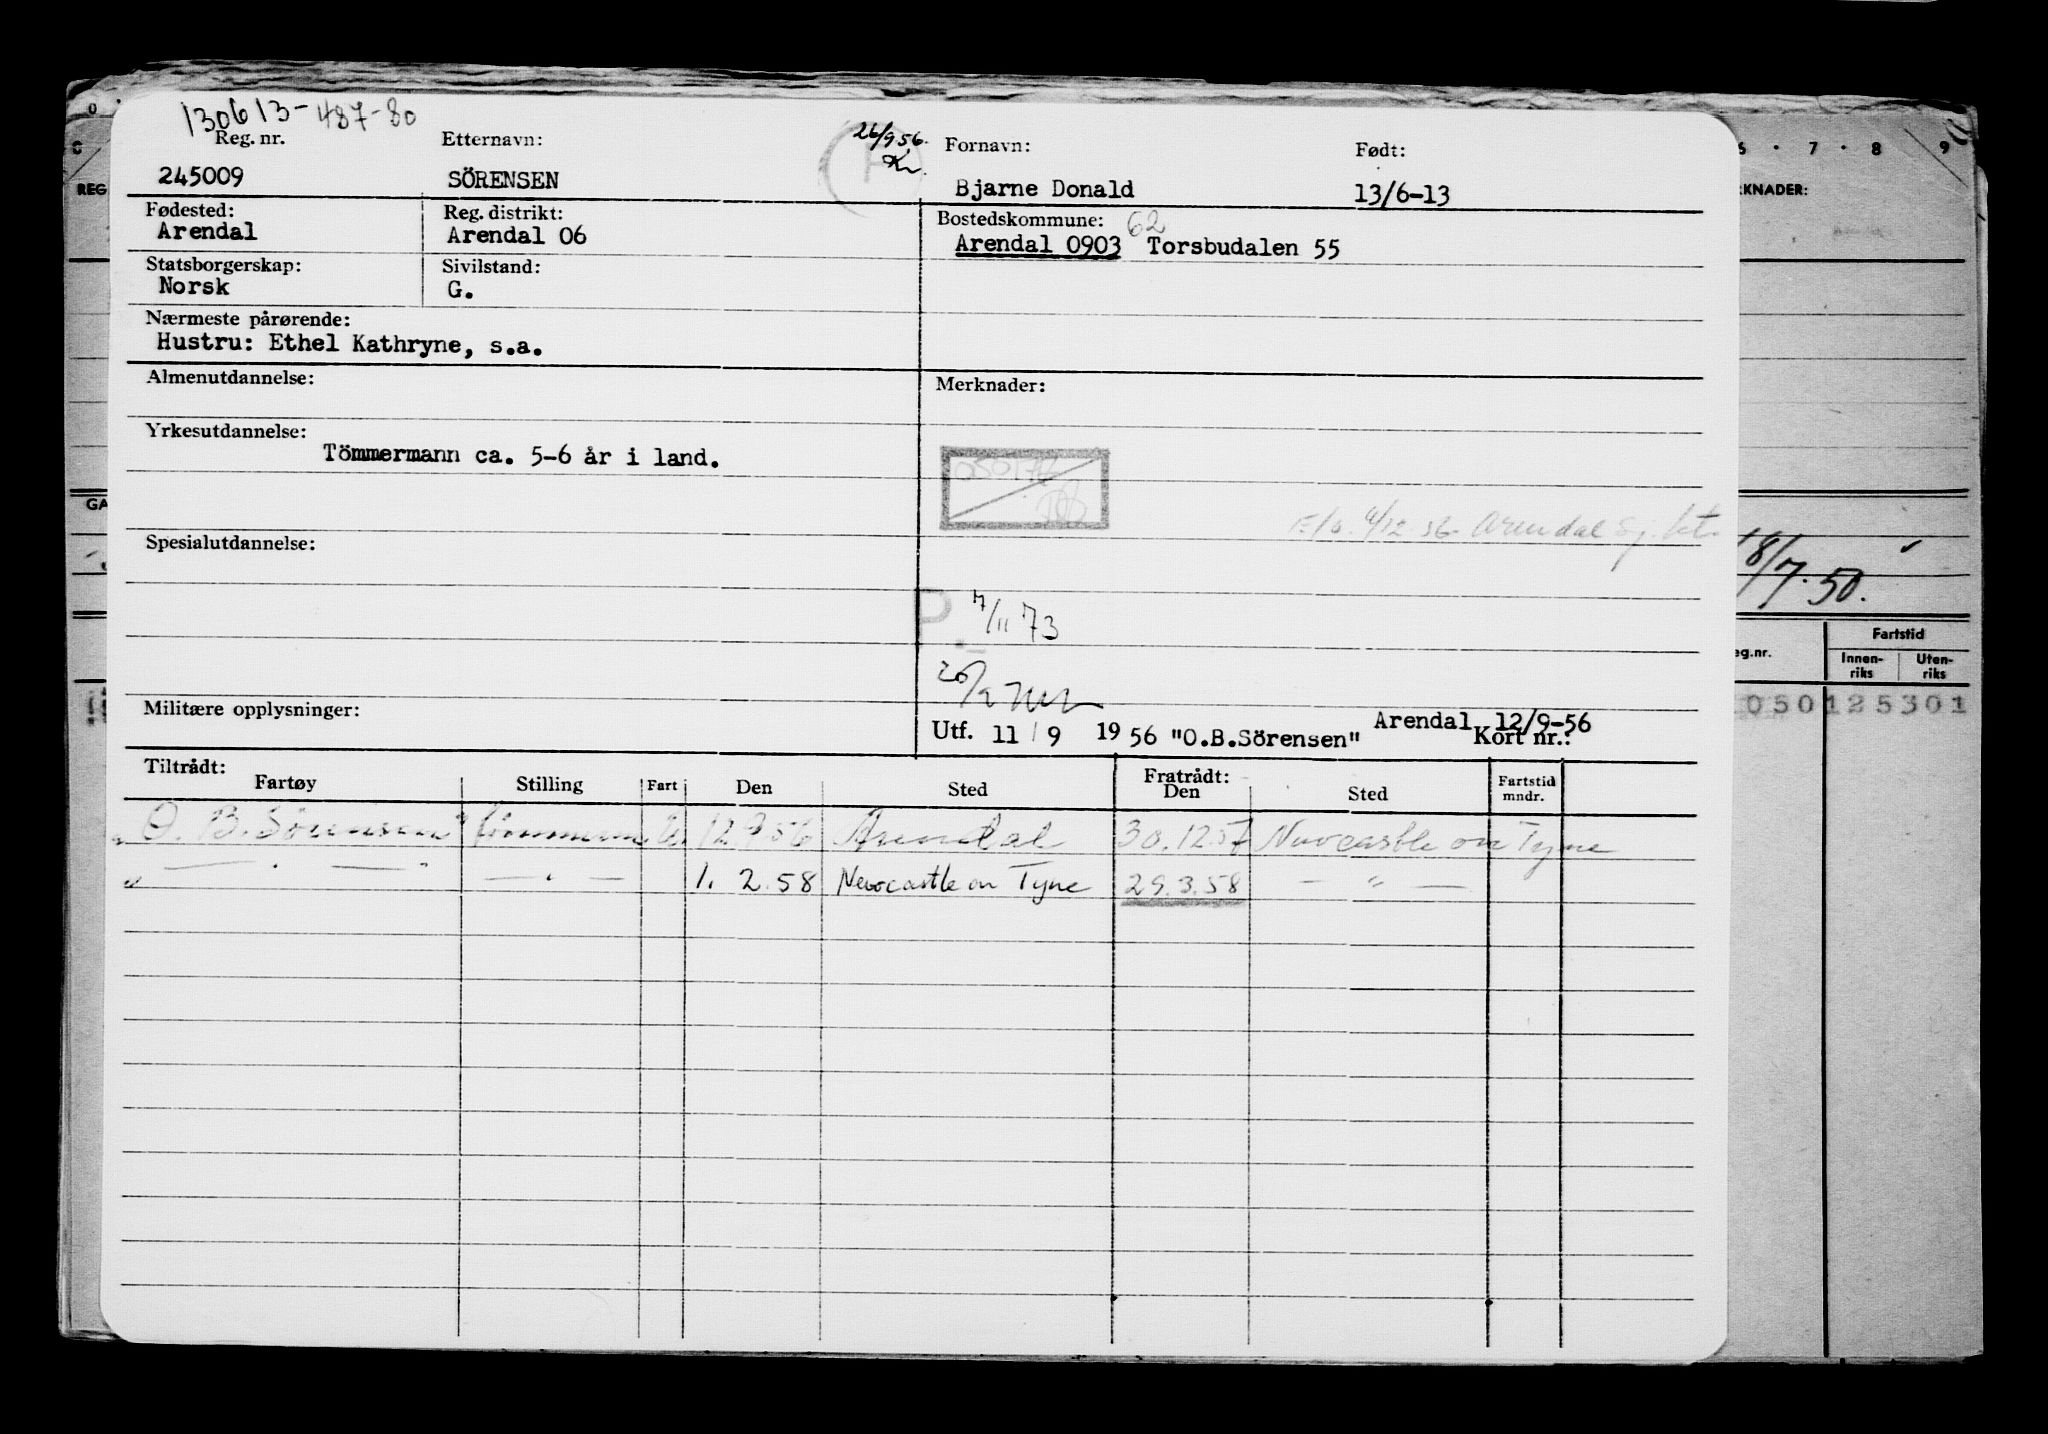 130613-487-80
Reg. nr. Etternavn: 26/9 56. Fornavn: Født:
245009 SÖRENSEN Bjarne Donald 13/6-13
Fødested: Reg. distrikt: Bostedskommune: 62
Arendal Arendal 06 Arendal 0903 Torsbudalen 55
Statsborgerskap: Sivilstand:
Norsk G.
Nærmeste pårørende:
Hustru: Ethel Kathryne, s.a.
Almenutdannelse: Merknader:
Yrkesutdannelse:
Tömmermann ca. 5-6 år i land.
Arendal
Spesialutdannelse:
P. 7/11 73
Militære opplysninger:
Arendal 12/9-56
Utf. 11/9 1956 "O.B.Sörensen" Kort nr.:
Tiltrådt: Fratrådt:
Fartøy Stilling Fart Den Sted Den Sted Fartstid mndr.
"O. B. Sörensen" tömmermann U. 12.9.56 Arendal 30.12.57 Newcastle on Tyne
" — " — " — " — 1. 2.58 Newcastle on Tyne 29.3.58 — " —
6 · 7 · 8 9
REG
RKNADER:
GA
18/7.50.
eg.nr. Fartstid
Innen-riks Uten-riks
050125301